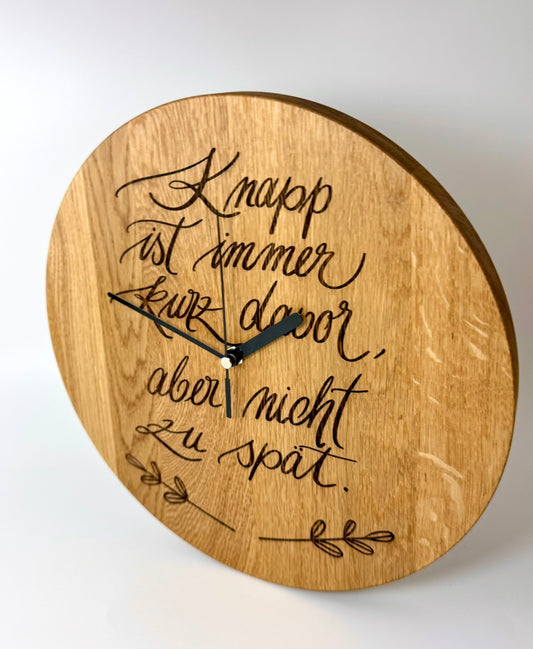 Knapp
ist immer
kurz davor,
aber nicht
zu spät.